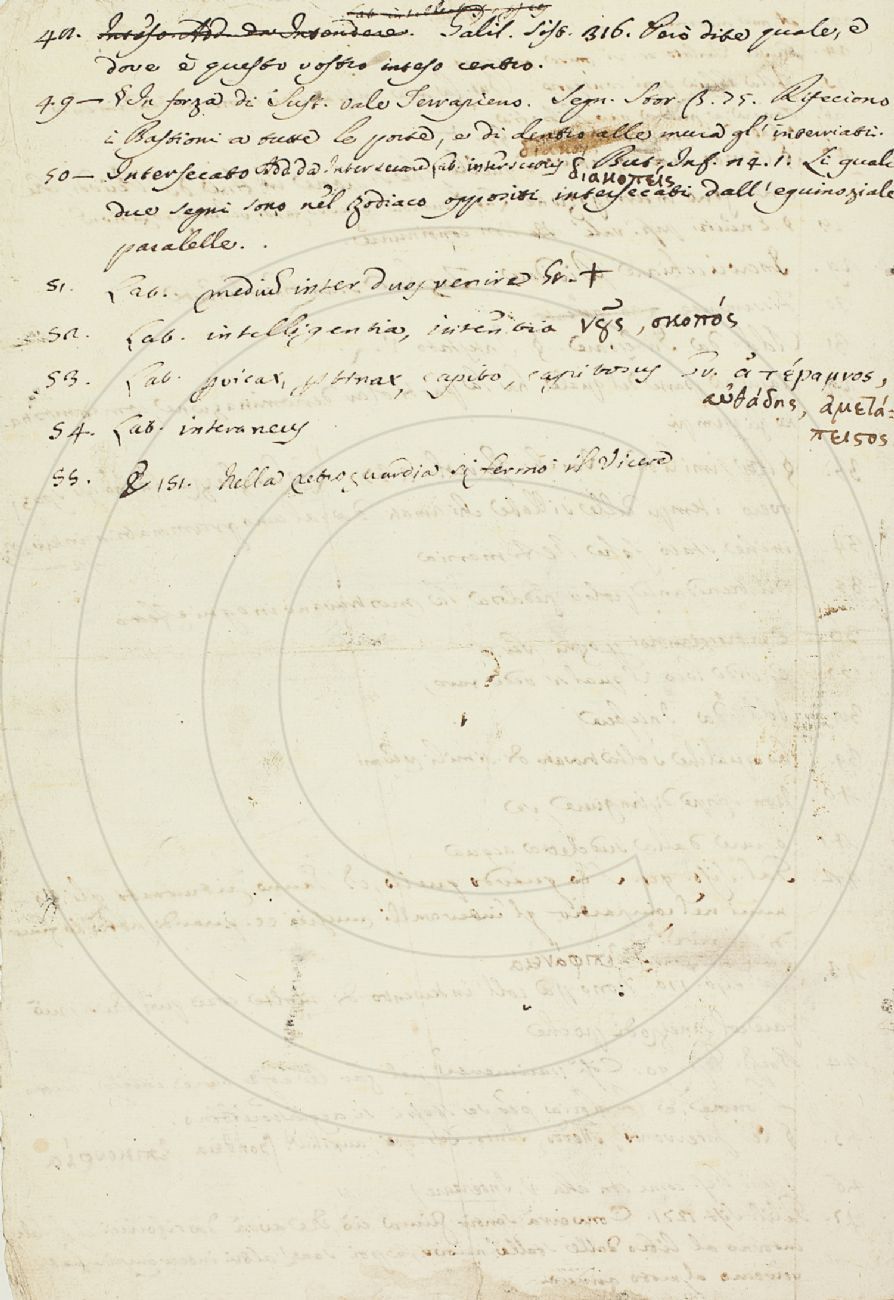 Lat. intellectus
48. Inteso Add. da Intendere. Galil. Sist. 316. Però dite quale, e
dove è questo vostro inteso centro.
49 — § In forza di Sust. vale Terrapieno. Segn. Stor. 3. 75. Rifeciono
i Bastioni a tutte le porte, e di dentro alle mura gl'interriati.
50 — Intersecato Add. da Intersecare Lat. intersectus § But. Inf. 24. 1. Li quali
διακοπείς
due segni sono nel zodiaco oppositi intersecati dall'equinoziale
paralelle.
51. Lat. medium inter duos venire Gr. +
52. Lat. intelligentia, intentio νοῦς, σκοπός
53. Lat. pervicax, pertinax, capito, Gr. ἀτέραμνος,
αὐθάδης, ἀμετά=
πειστος
54. Lat. interaneus
55. 151. Nella retroguardia si fermò il Vicere